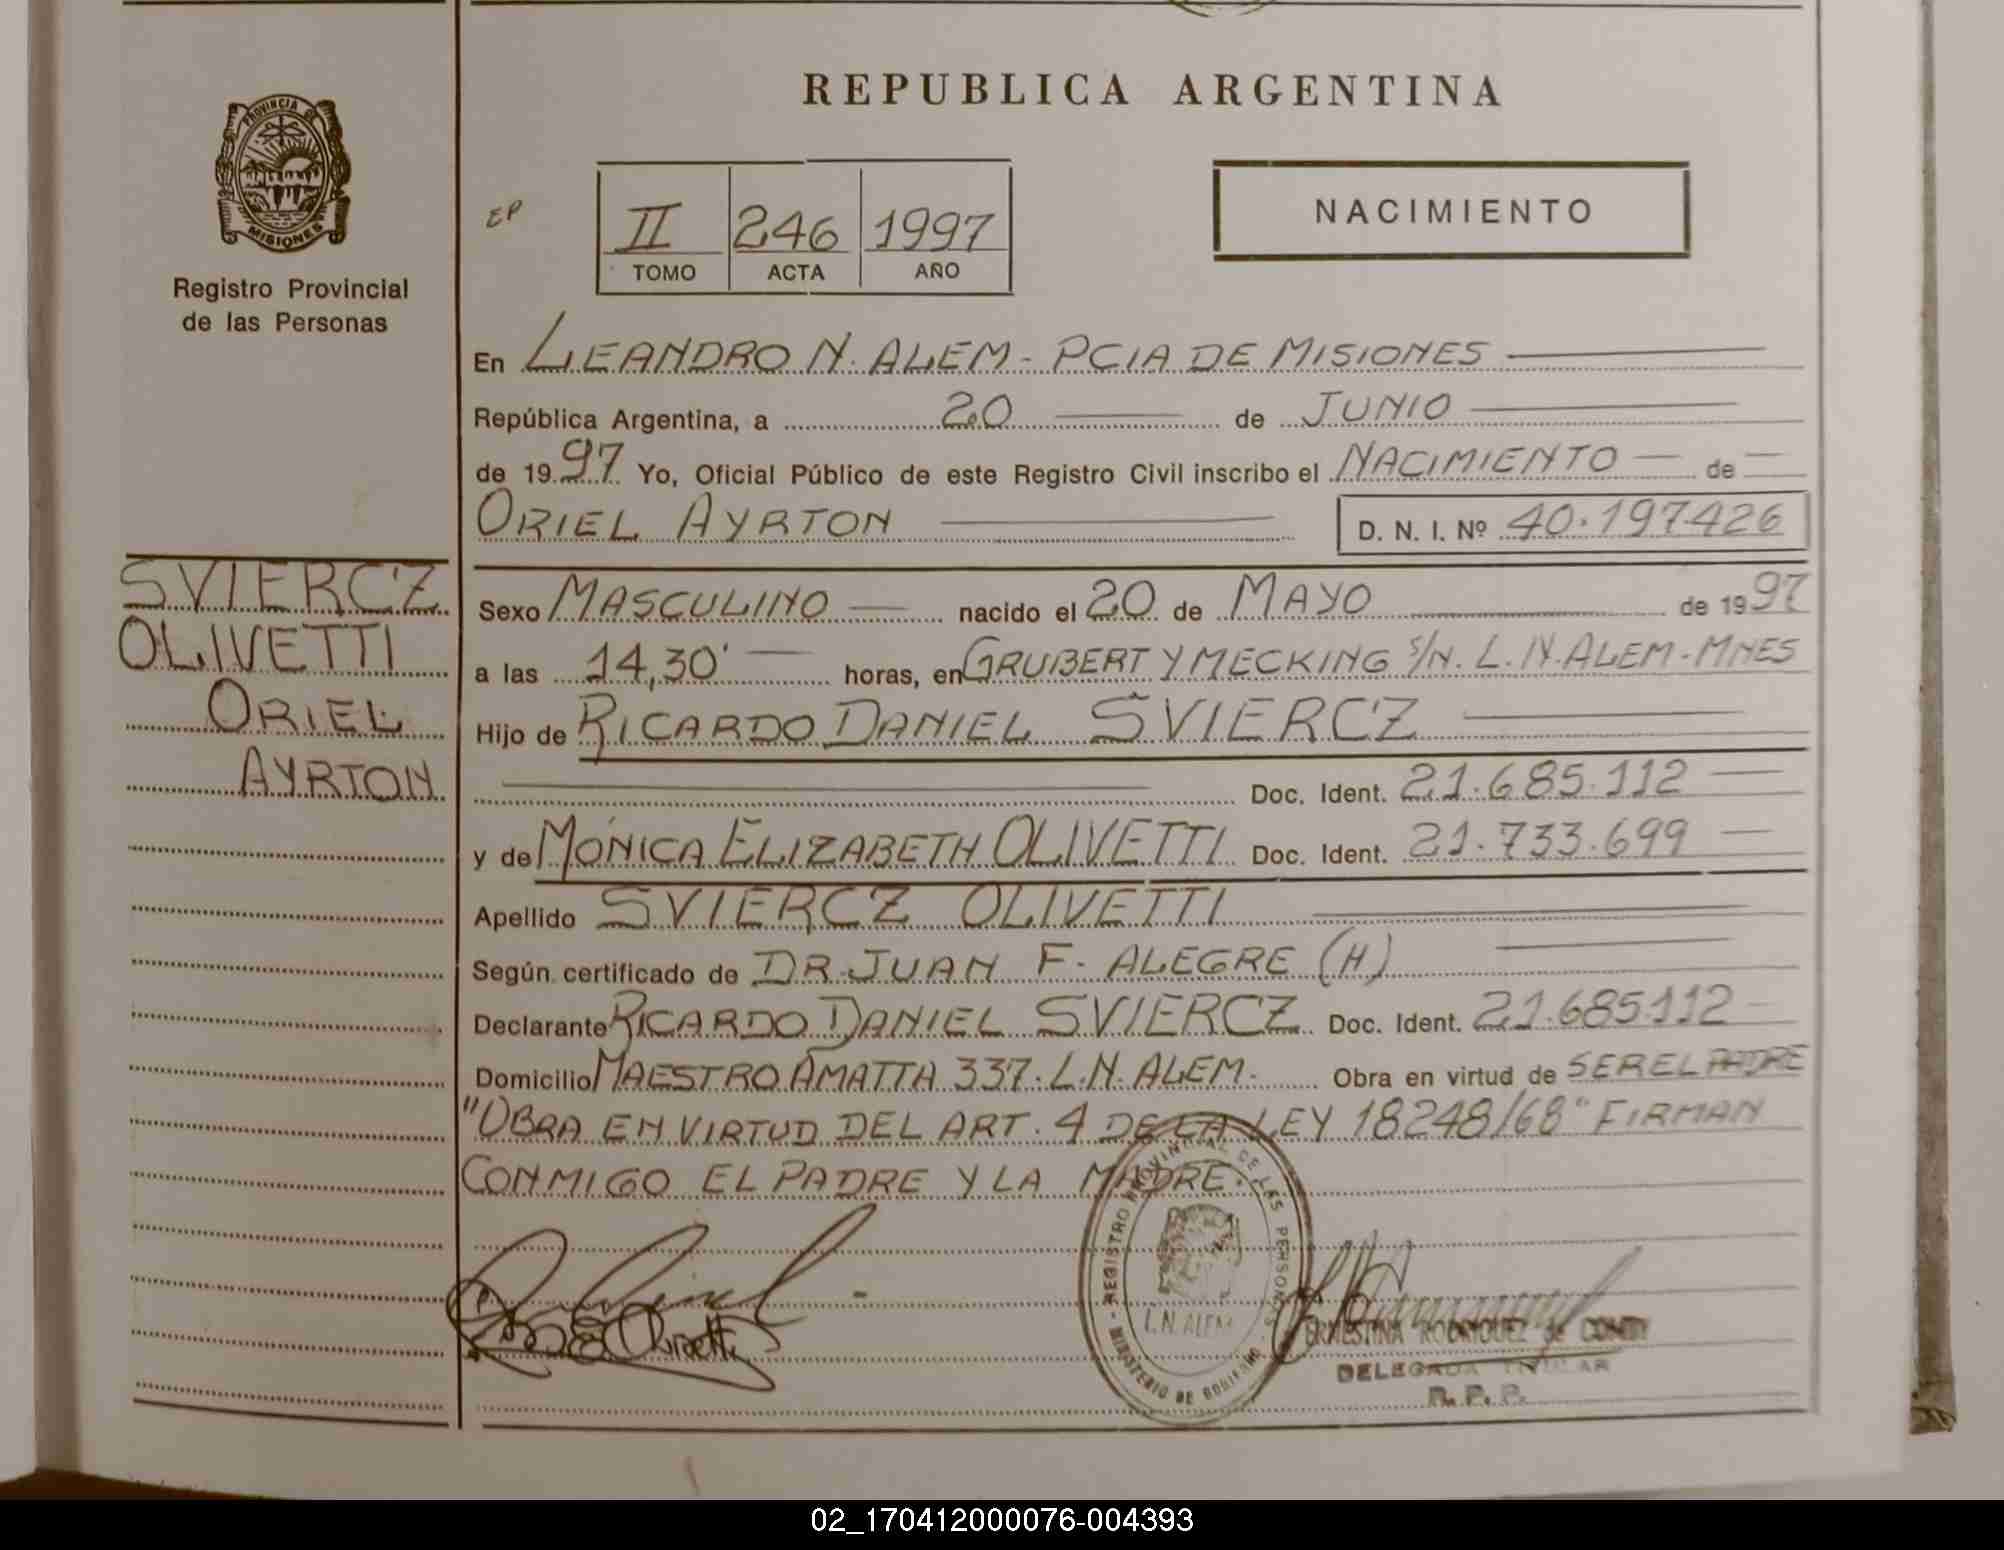 REPUBLICA ARGENTINA
PROVINCIA DE
MISIONES
Registro Provincial
de las Personas
EP
II 246 1997
TOMO ACTA AÑO
NACIMIENTO
En LEANDRO N. ALEM - PCIA DE MISIONES
República Argentina, a 20 de JUNIO
de 1997 Yo, Oficial Público de este Registro Civil inscribo el NACIMIENTO de
ORIEL AYRTON D. N. I. Nº 40.197.426
SVIERCZ
OLIVETTI
ORIEL
AYRTON
Sexo MASCULINO nacido el 20 de MAYO de 1997
a las 14,30' horas, en GRUBERT Y MECKING S/N. L. N. ALEM - MNES
Hijo de RICARDO DANIEL SVIERCZ
Doc. Ident. 21.685.112
y de MÓNICA ELIZABETH OLIVETTI Doc. Ident. 21.733.699
Apellido SVIERCZ OLIVETTI
Según certificado de DR. JUAN F. ALEGRE (H)
Declarante RICARDO DANIEL SVIERCZ Doc. Ident. 21.685.112
Domicilio MAESTRO AMATTA 337. L.N. ALEM. Obra en virtud de SER EL PADRE
"OBRA EN VIRTUD DEL ART. 4 DE LA LEY 18248/68" FIRMAN
CONMIGO EL PADRE Y LA MADRE.
REGISTRO PROVINCIAL DE LAS PERSONAS
L.N. ALEM
MINISTERIO DE GOBIERNO
ERNESTINA RODRIGUEZ de
DELEGADA TITULAR
R. P. P.
02_170412000076-004393